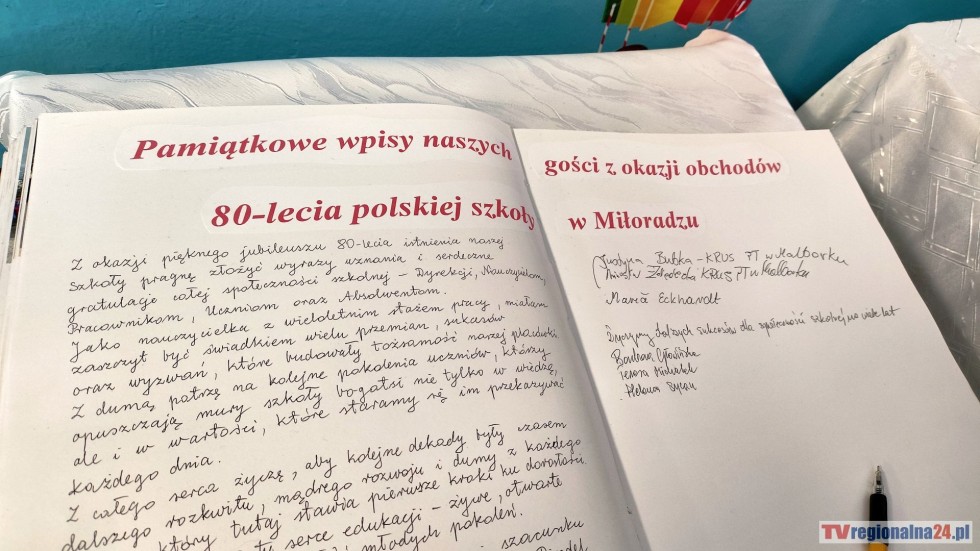 Pamiątkowe wpisy naszych
80-lecia polskiej szkoły
Z okazji pięknego jubileuszu 80-lecia istnienia naszej
Szkoły pragnę złożyć wyrazy uznania i serdeczne
gratulacje całej społeczności szkolnej – Dyrekcji, Nauczycielom,
Pracownikom, Uczniom oraz Absolwentom.
Jako nauczycielka z wieloletnim stażem pracy, miałam
zaszczyt być świadkiem wielu przemian, sukcesów
oraz wyzwań, które budowały tożsamość naszej placówki
Z dumą patrzę na kolejne pokolenia uczniów, którzy
opuszczają mury szkoły bogatsi nie tylko w wiedzę,
ale i w wartości, które staramy się im przekazywać
każdego dnia.
Z całego serca życzę, aby kolejne dekady były czasem
dalszego rozkwitu, mądrego rozwoju i dumy z każdego
który tutaj stawia pierwsze kroki ku dorosłości.
serce edukacji – żywe, otwarte
młodych pokoleń.
szacunku
gości z okazji obchodów
w Miłoradzu
Justyna Bubka – KRUS PT w Malborku
KRUS PT w Malborku
Maria Eckhardt
Życzymy dalszych sukcesów dla społeczności szkolnej na wiele lat
Barbara
Teresa Michalek
Helena
TVregionalna24.pl